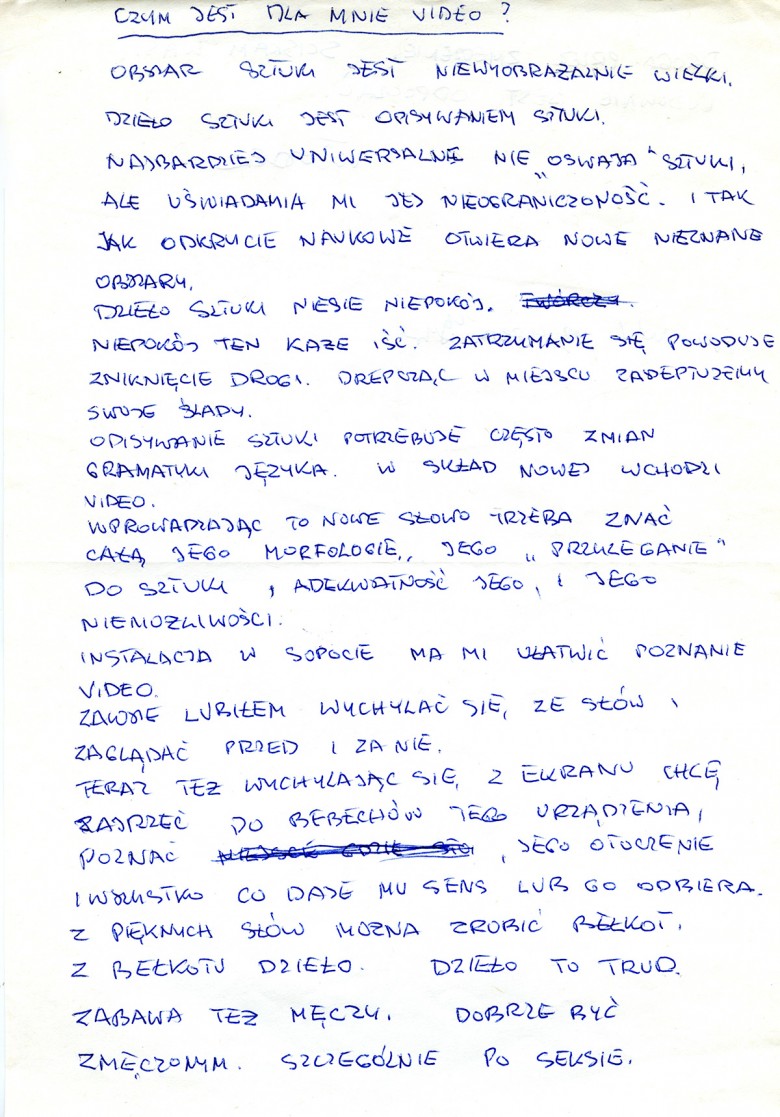 CZYM JEST DLA MNIE VIDEO?
OBSZAR SZTUKI JEST NIEWYOBRAŻALNIE WIELKI.
DZIEŁO SZTUKI JEST OPISYWANIEM SZTUKI.
NAJBARDZIEJ UNIWERSALNE NIE „OSWAJA" SZTUKI,
ALE UŚWIADAMIA MI JEJ NIEOGRANICZONOŚĆ. I TAK
JAK ODKRYCIE NAUKOWE OTWIERA NOWE NIEZNANE
OBSZARY.
DZIEŁO SZTUKI NIESIE NIEPOKÓJ. TWÓRCZY.
NIEPOKÓJ TEN KAŻE IŚĆ. ZATRZYMANIE SIĘ POWODUJE
ZNIKNIĘCIE DROGI. DREPCZĄC W MIEJSCU ZADEPTUJEMY
SWOJE ŚLADY.
OPISYWANIE SZTUKI POTRZEBUJE CZĘSTO ZMIAN
GRAMATYKI JĘZYKA. W SKŁAD NOWEJ WCHODZI
VIDEO.
WPROWADZAJĄC TO NOWE SŁOWO TRZEBA ZNAĆ
CAŁĄ JEGO MORFOLOGIĘ, JEGO „PRZYLEGANIE"
DO SZTUKI, ADEKWATNOŚĆ JEGO, I JEGO
NIEMOŻLIWOŚCI.
INSTALACJA W SOPOCIE MA MI UŁATWIĆ POZNANIE
VIDEO.
ZAWSZE LUBIŁEM WYCHYLAĆ SIĘ ZE SŁÓW I
ZAGLĄDAĆ PRZED I ZA NIE.
TERAZ TEŻ WYCHYLAJĄC SIĘ Z EKRANU CHCĘ
ZAJRZEĆ DO BEBECHÓW TEGO URZĄDZENIA,
POZNAĆ , JEGO OTOCZENIE
I WSZYSTKO CO DAJE MU SENS LUB GO ODBIERA.
Z PIĘKNYCH SŁÓW MOŻNA ZROBIĆ BEŁKOT.
Z BEŁKOTU DZIEŁO. DZIEŁO TO TRUD.
ZABAWA TEŻ MĘCZY. DOBRZE BYĆ
ZMĘCZONYM. SZCZEGÓLNIE PO SEKSIE.